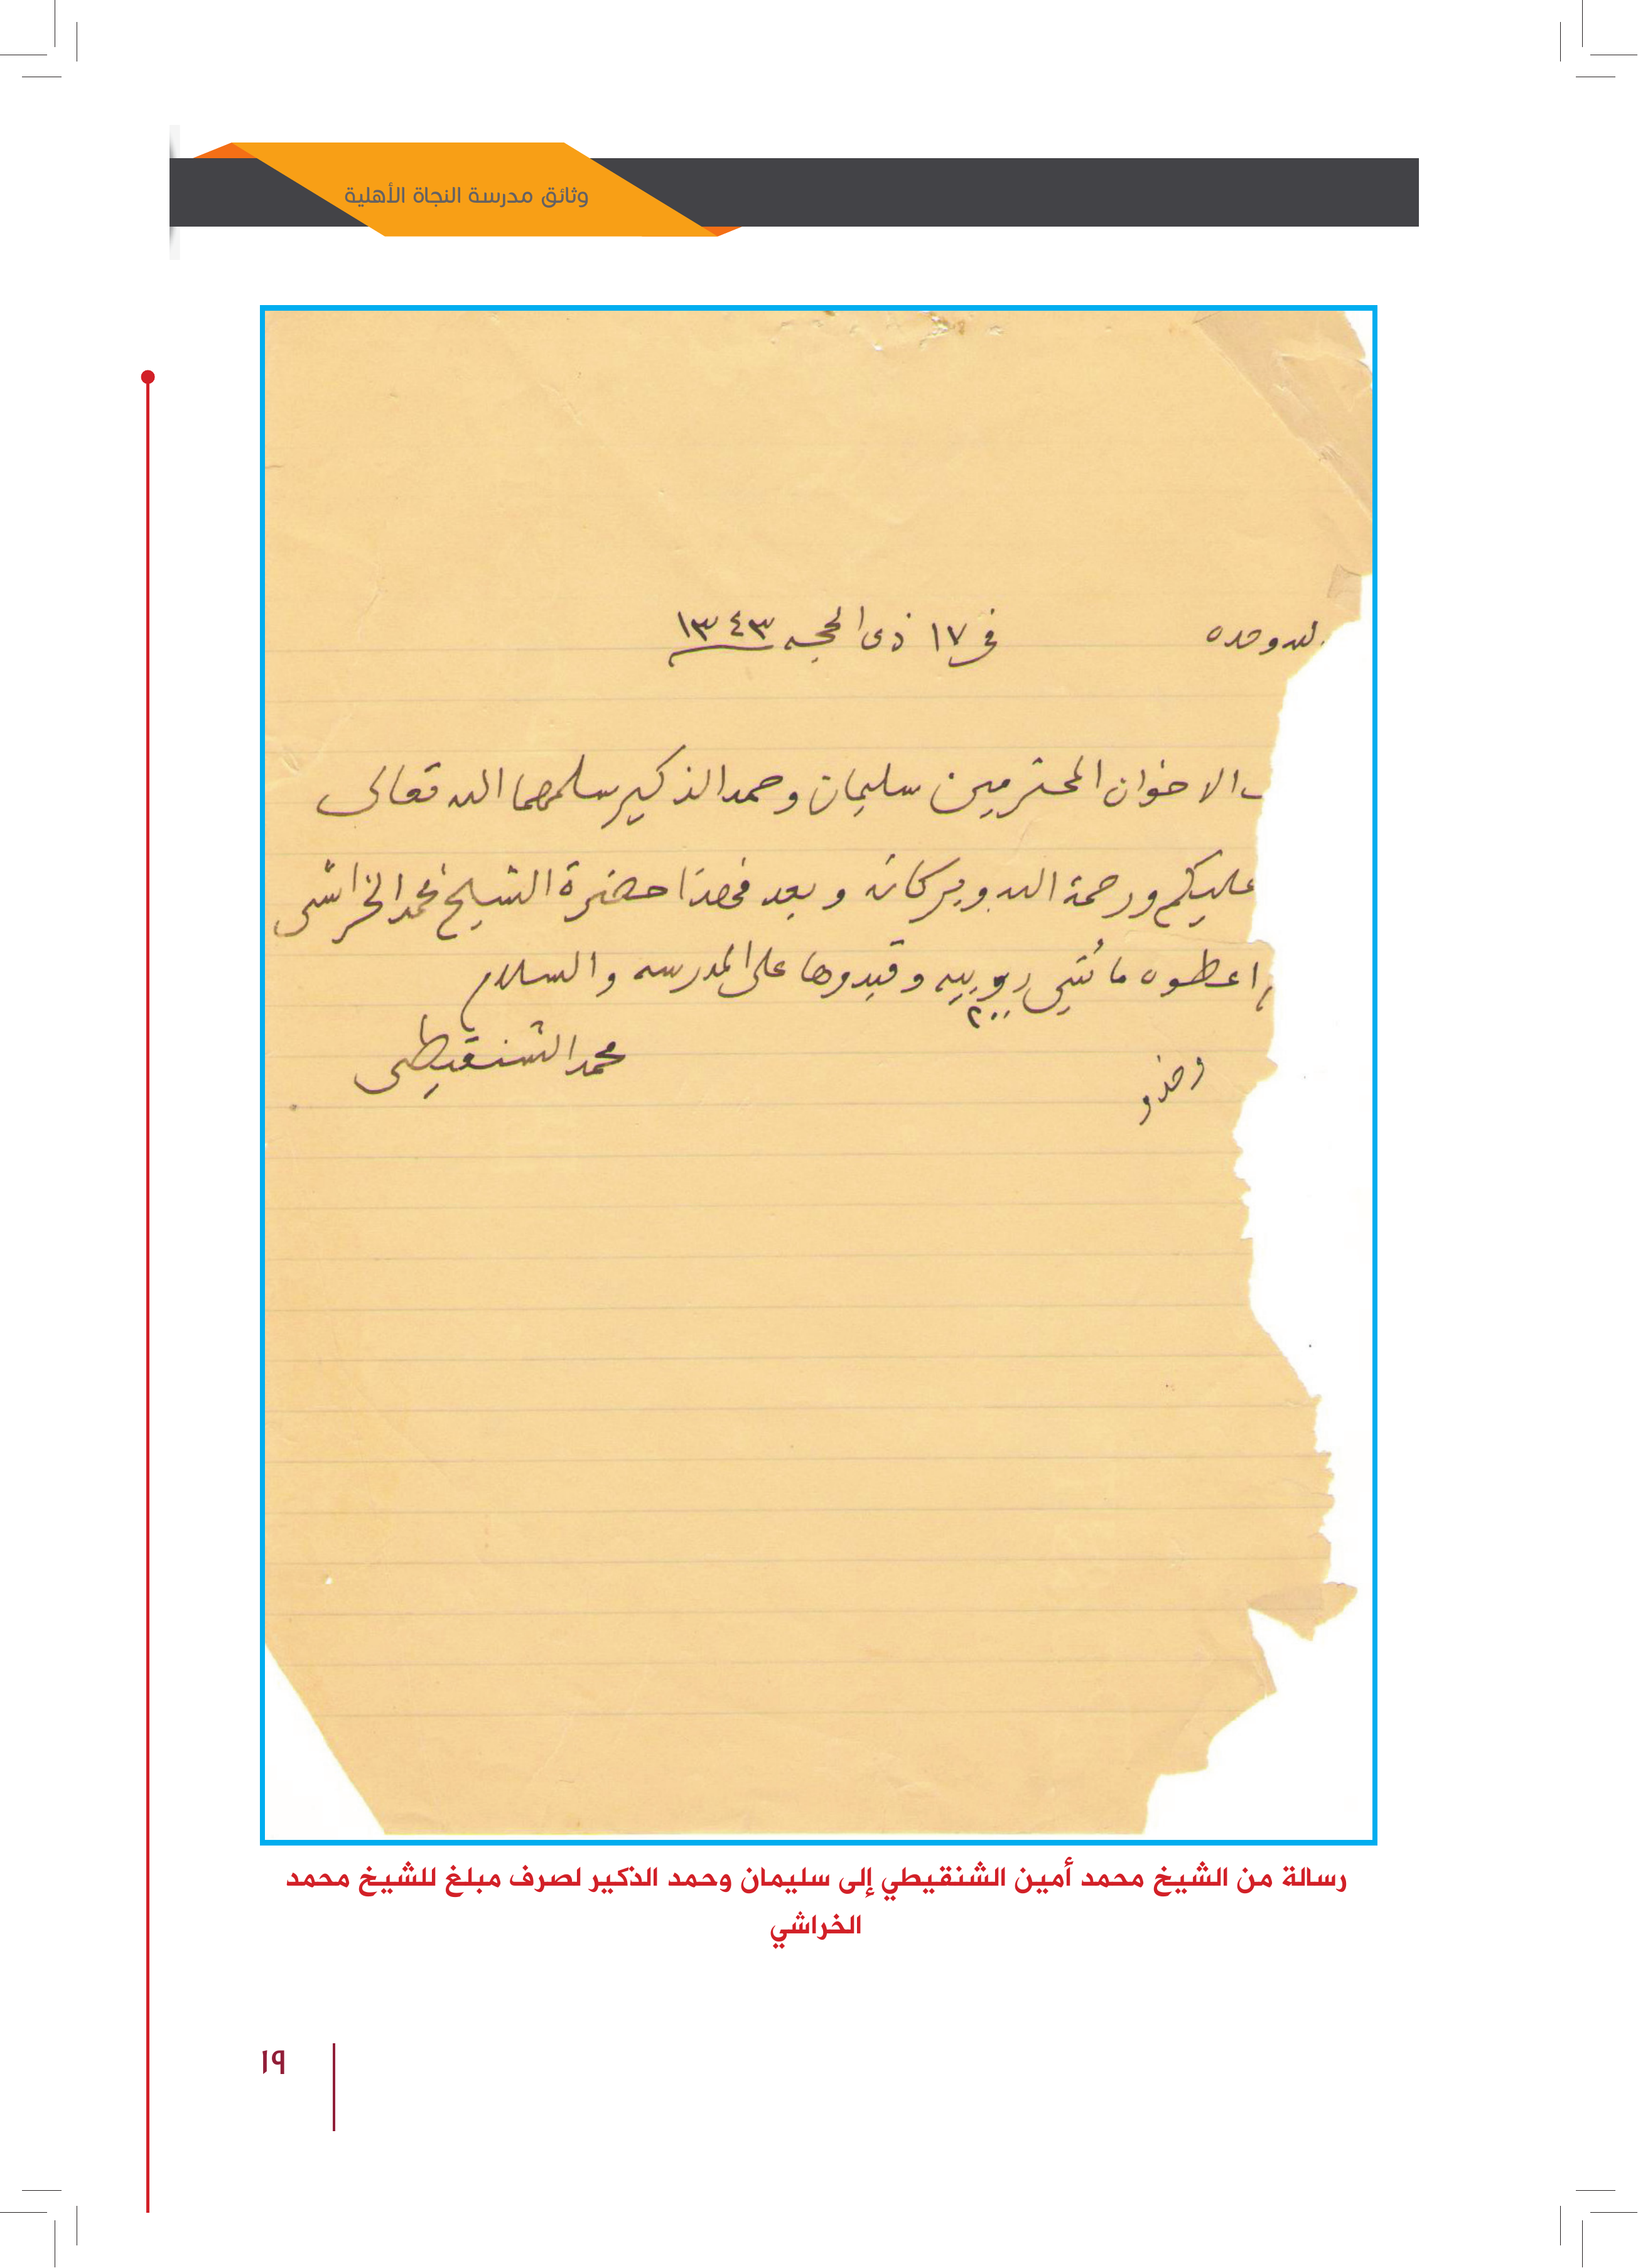 وثائق مدرسة النجاة الأهلية
لله وحده
في ١٧ ذى الحجه ١٣٤٣
الاخوان المحترمين سليمان وحمد الذكير سلمهما الله تعالى
عليكم ورحمة الله وبركاته وبعد حضرة الشيخ محمد الخراشى
اعطوه مائتي روبيه وقيدوها على المدرسه والسلام
٢٠٠
محمد الشنقيطى
رسالة من الشيخ محمد أمين الشنقيطي إلى سليمان وحمد الذكير لصرف مبلغ للشيخ محمد
الخراشي
١٩